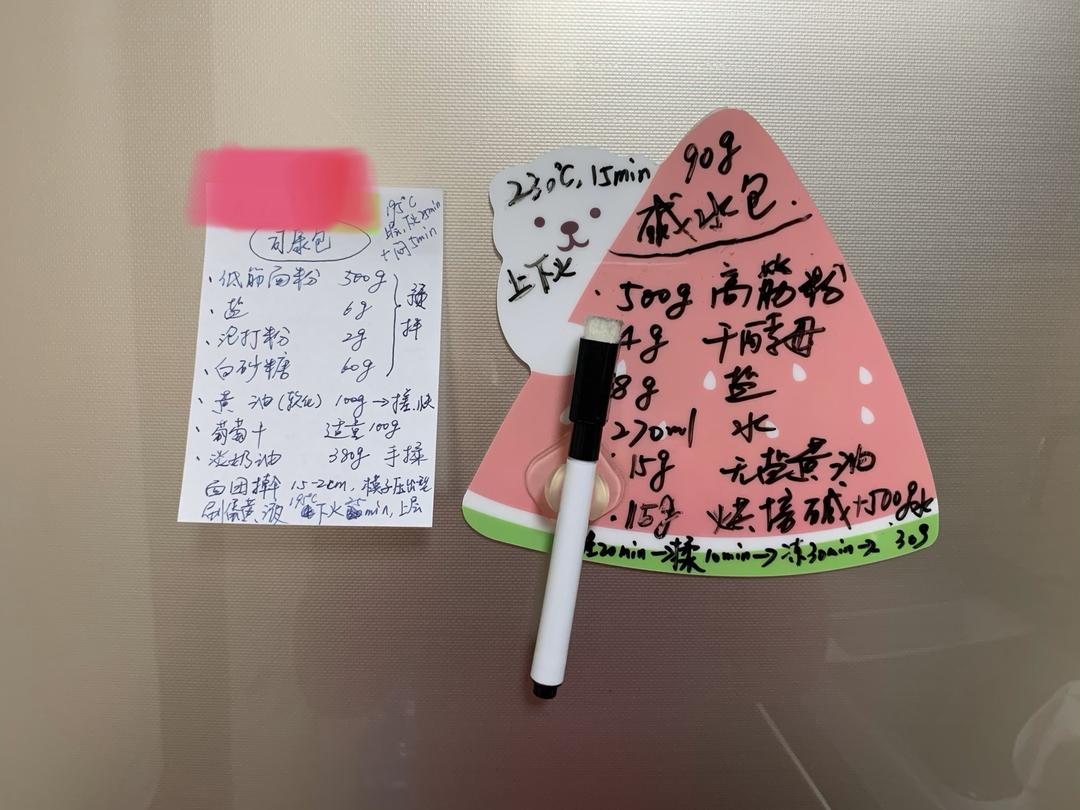 司康包
195℃
最下火25min
+ 5min
· 低筋面粉 500g
· 盐 6g
· 泡打粉 2g
· 白砂糖 60g
预拌
· 黄油(软化) 100g→搓
· 葡萄干 适量100g
· 淡奶油 380g 手揉
面团擀 1.5-2cm, 模子压出型
刷蛋黄液 195℃ 下火 25min, 上层
230℃, 15min
上下火
90g
碱水包.
· 500g 高筋粉
4g 干酵母
8g 盐
270ml 水
· 15g 无盐黄油
· 15g 烘培碱+500g水
20min→揉10min→冻30min→ 30g